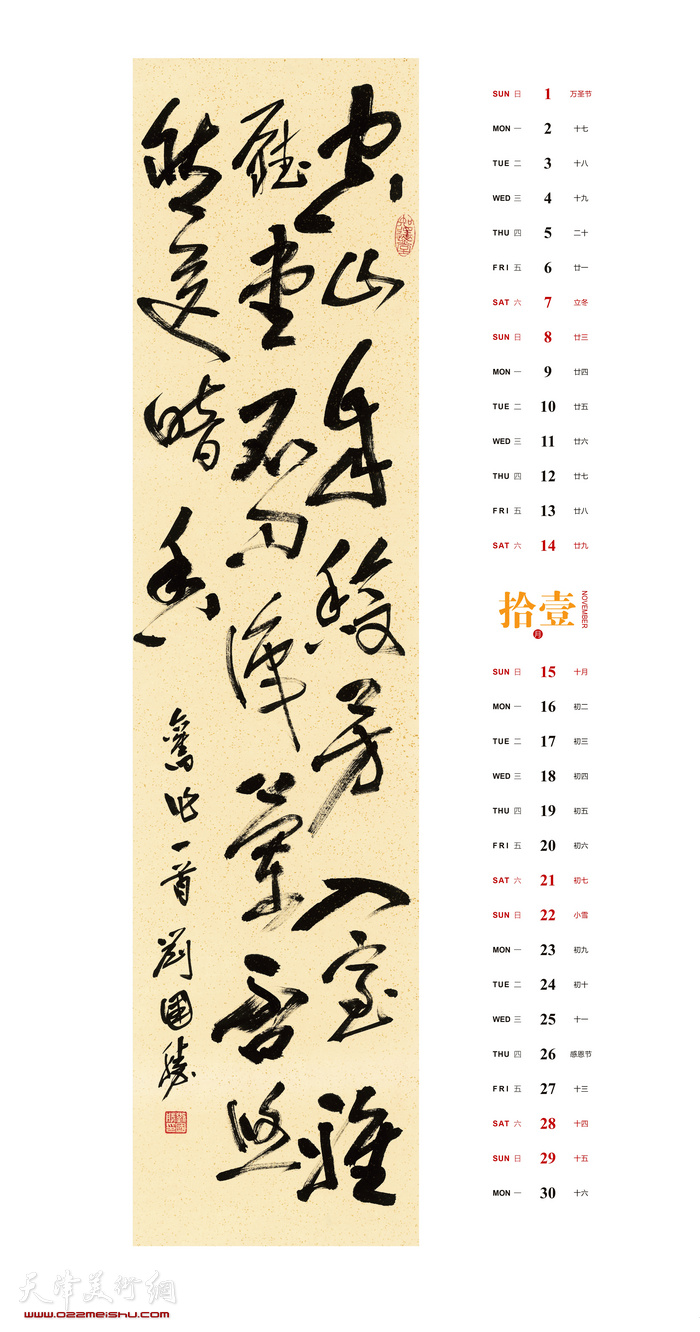 空山
移芳入室雅
廳堂
悠
然送暗香
舊作一首 劉國勝
SUN 日 1 万圣节
MON 一 2 十七
TUE 二 3 十八
WED 三 4 十九
THU 四 5 二十
FRI 五 6 廿一
SAT 六 7 立冬
SUN 日 8 廿三
MON 一 9 廿四
TUE 二 10 廿五
WED 三 11 廿六
THU 四 12 廿七
FRI 五 13 廿八
SAT 六 14 廿九
拾壹月 NOVEMBER
SUN 日 15 十月
MON 一 16 初二
TUE 二 17 初三
WED 三 18 初四
THU 四 19 初五
FRI 五 20 初六
SAT 六 21 初七
SUN 日 22 小雪
MON 一 23 初九
TUE 二 24 初十
WED 三 25 十一
THU 四 26 感恩节
FRI 五 27 十三
SAT 六 28 十四
SUN 日 29 十五
MON 一 30 十六
天津美術網
www.022meishu.com